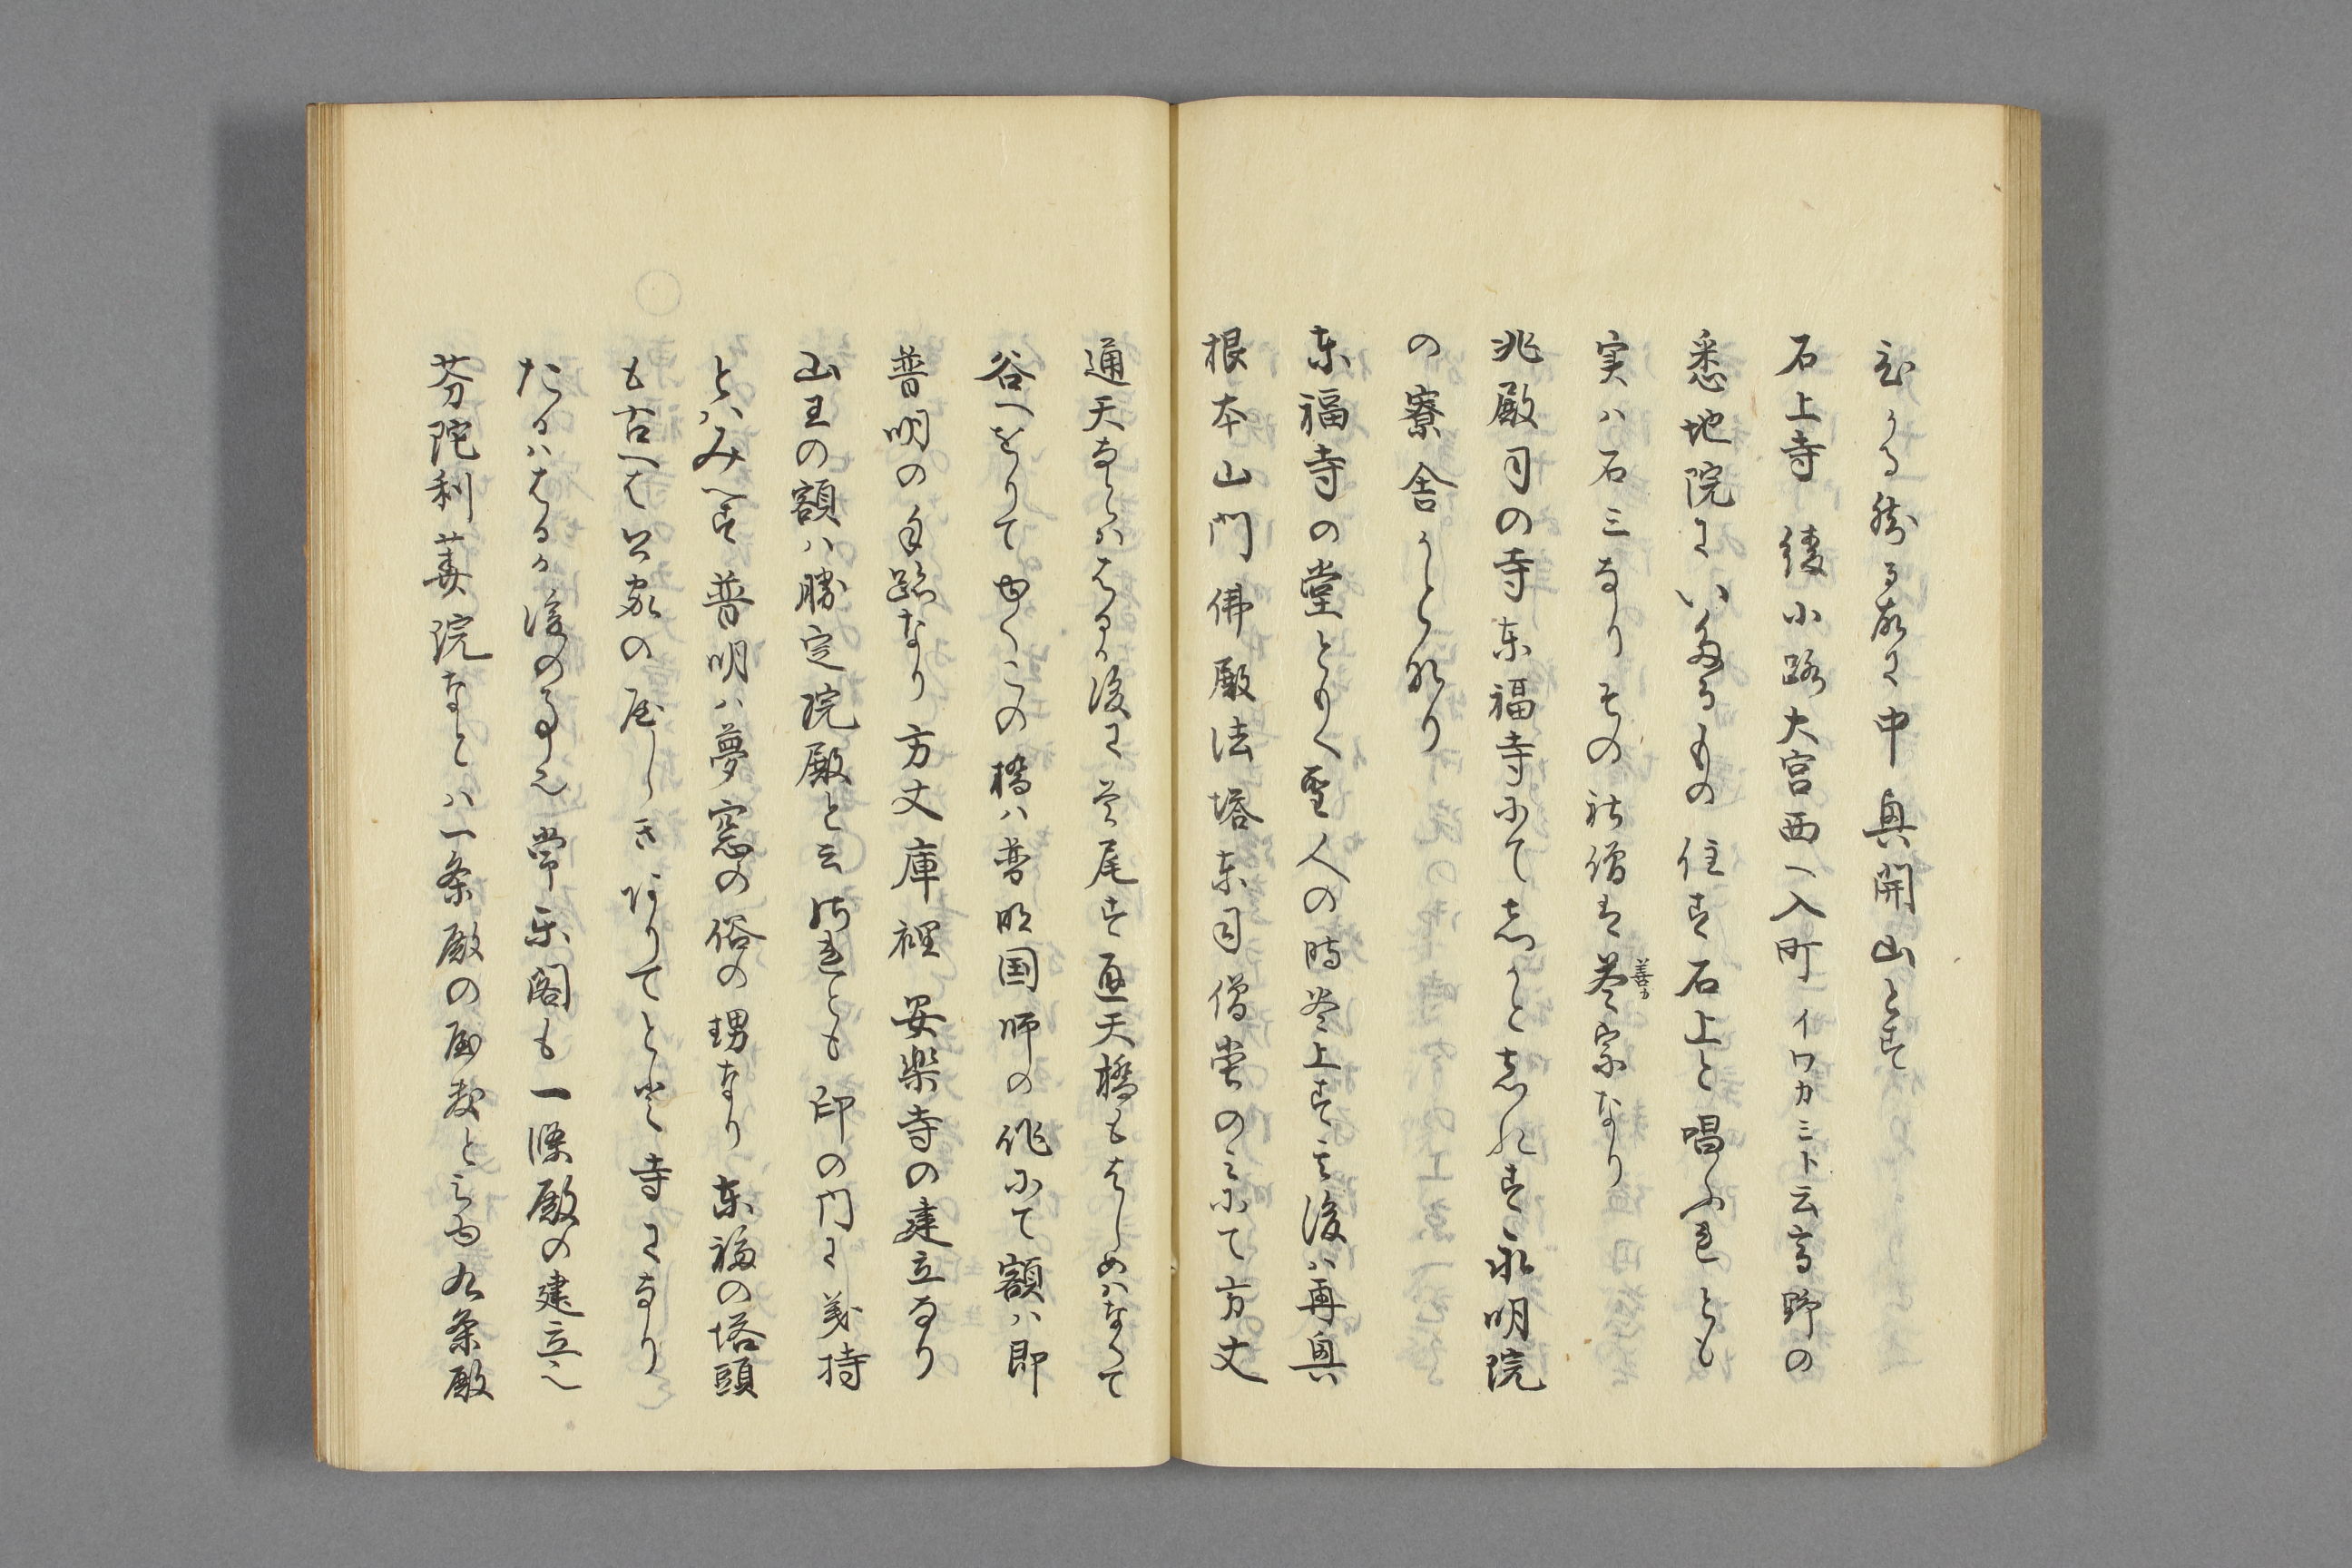 る故に中興開山とす
石上寺 綾小路大宮西へ入町 イワカミト云高野の
悉地院にいたるもの住す石上と唱ふれとも
実ハ石三なりその社僧は巻宗なり
善カ
兆殿司の寺東福寺にて志かと志れす永明院
の寮舎かとなり
東福寺の堂とも聖人の時巻上す其後ハ再興
根本山門佛殿法塔東司僧堂のミにて方丈
通天なとハはるか後に巻尾す通天橋もはしめハなくて
谷へをりてゆくこの橋ハ普明国師の作にて額ハ即
普明の手跡なり方丈庫裡安楽寺の建立なり
山王の額ハ勝定院殿と云けれとも印の門に義持
とハみへす普明ハ夢窓の俗の甥なり東福の塔頭
も古へは公家の屋しきありて寺になり
たるハはるか後の事也常楽閣も一條殿の建立也
芬陀利華院なとハ一条殿の屋敷と云内九条殿